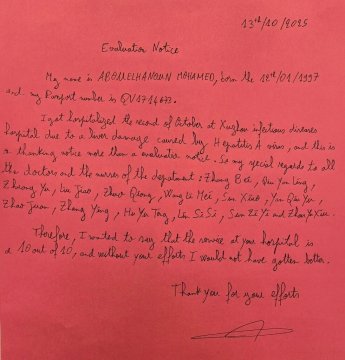 13th/10/2025
Evaluation Notice
My name is ABDUELHANOUN MOHAMED, born the 12th/01/1997
and my Passport number is QV1714673.
I got hospitalized the second of October at Xuzhou infectious diseases
hospital due to a liver damage caused by Hepatitis A virus, and this is
a thanking notice more than a evaluation notice. So my special regards to all
the doctors and the nurses of the department: Zhang Bei,
Zhuang Yu, Liu Jiao, Zhao Qiong, Wang Le Mei, Sun Xiao,
Zhao Juan, Zhang Ying, Hu Yu Tong, Lin Si Si, Sun Zi Yi and
Therefore, I wanted to say that the service at your hospital is
a 10 out of 10, and without your efforts I would not have gotten better.
Thank you for your efforts